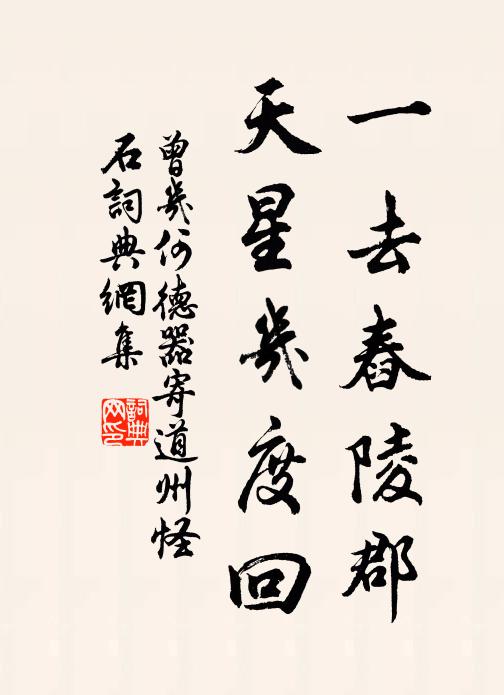 一去舂陵郡
天星幾度回
曾幾何德器寄道州怪
石詞典網集
詞典
网印